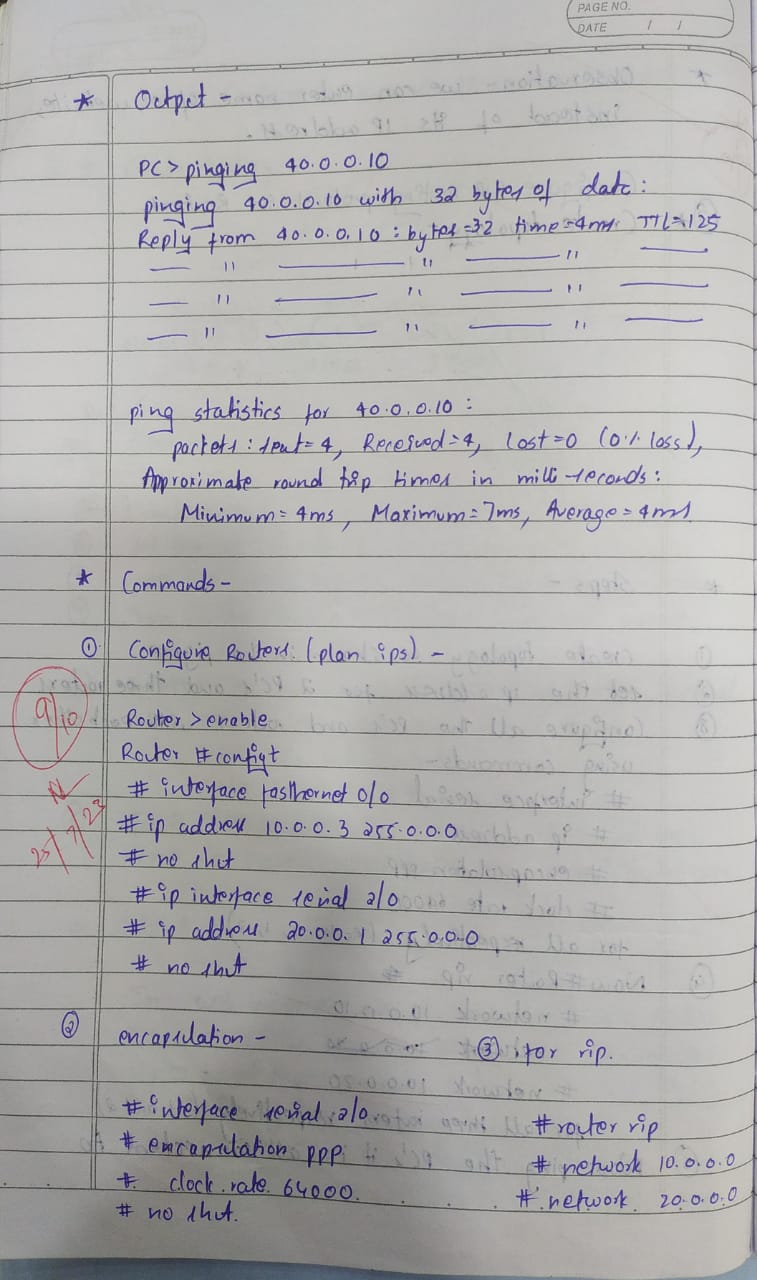 PAGE NO.
DATE / /
* Output -
PC > pinging 40.0.0.10
pinging 40.0.0.10 with 32 bytes of data:
Reply from 40.0.0.10 : bytes=32 time=4ms TTL=125
— " — " — " —
— " — " — " —
— " — " — " —
ping statistics for 40.0.0.10 :
packets : sent = 4, Received = 4, Lost = 0 (0% loss),
Approximate round trip times in milli-seconds :
Minimum = 4ms, Maximum = 7ms, Average = 4ms
* Commands -
① Configure Routers. (plan ips) -
9/10
Router > enable
Router # config t
# interface fasthernet 0/0
# ip address 10.0.0.3 255.0.0.0
25/7/23
# no shut
# ip interface serial 2/0
# ip address 20.0.0.1 255.0.0.0
# no shut
② encapsulation -
# interface serial 2/0
# encapsulation ppp
# clock rate 64000
# no shut.
③ for rip.
# router rip
# network 10.0.0.0
# network 20.0.0.0